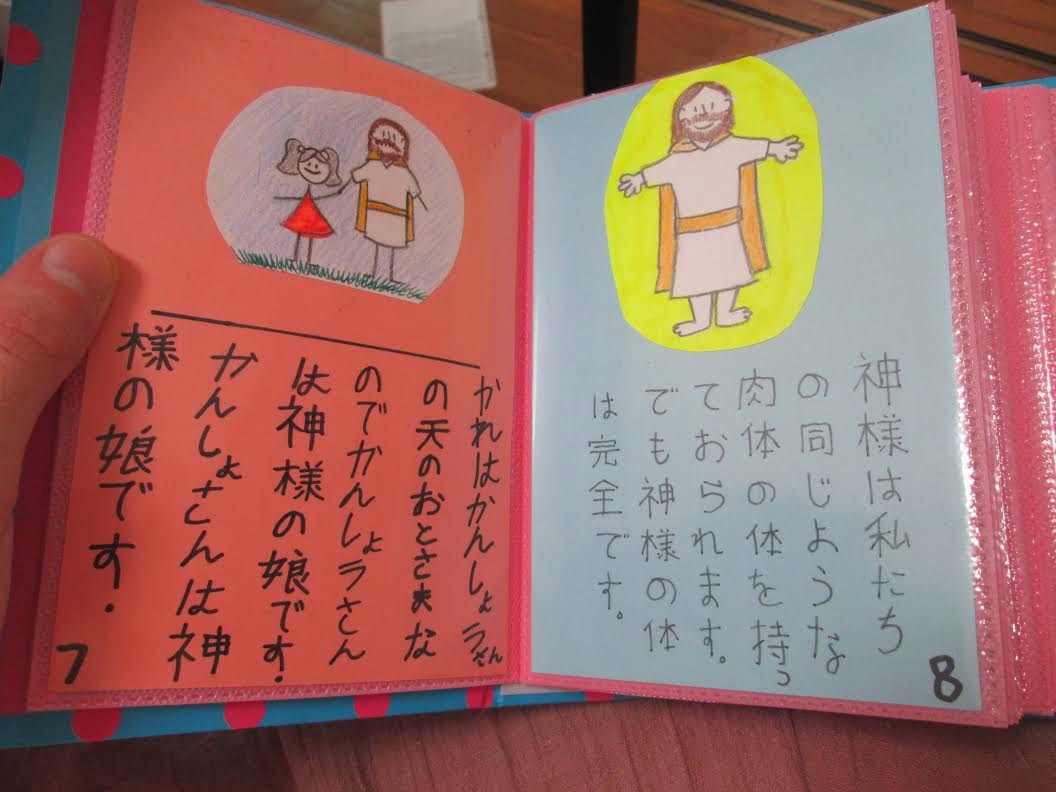 かれはかんしょラさん
の天のおとさまな
のでかんしょラさん
は神様の娘です.
かんしょさんは神
様の娘です.
7
神様は私たち
の同じような
肉体の体を持っ
ておられます。
でも神様の体
は完全です。
8